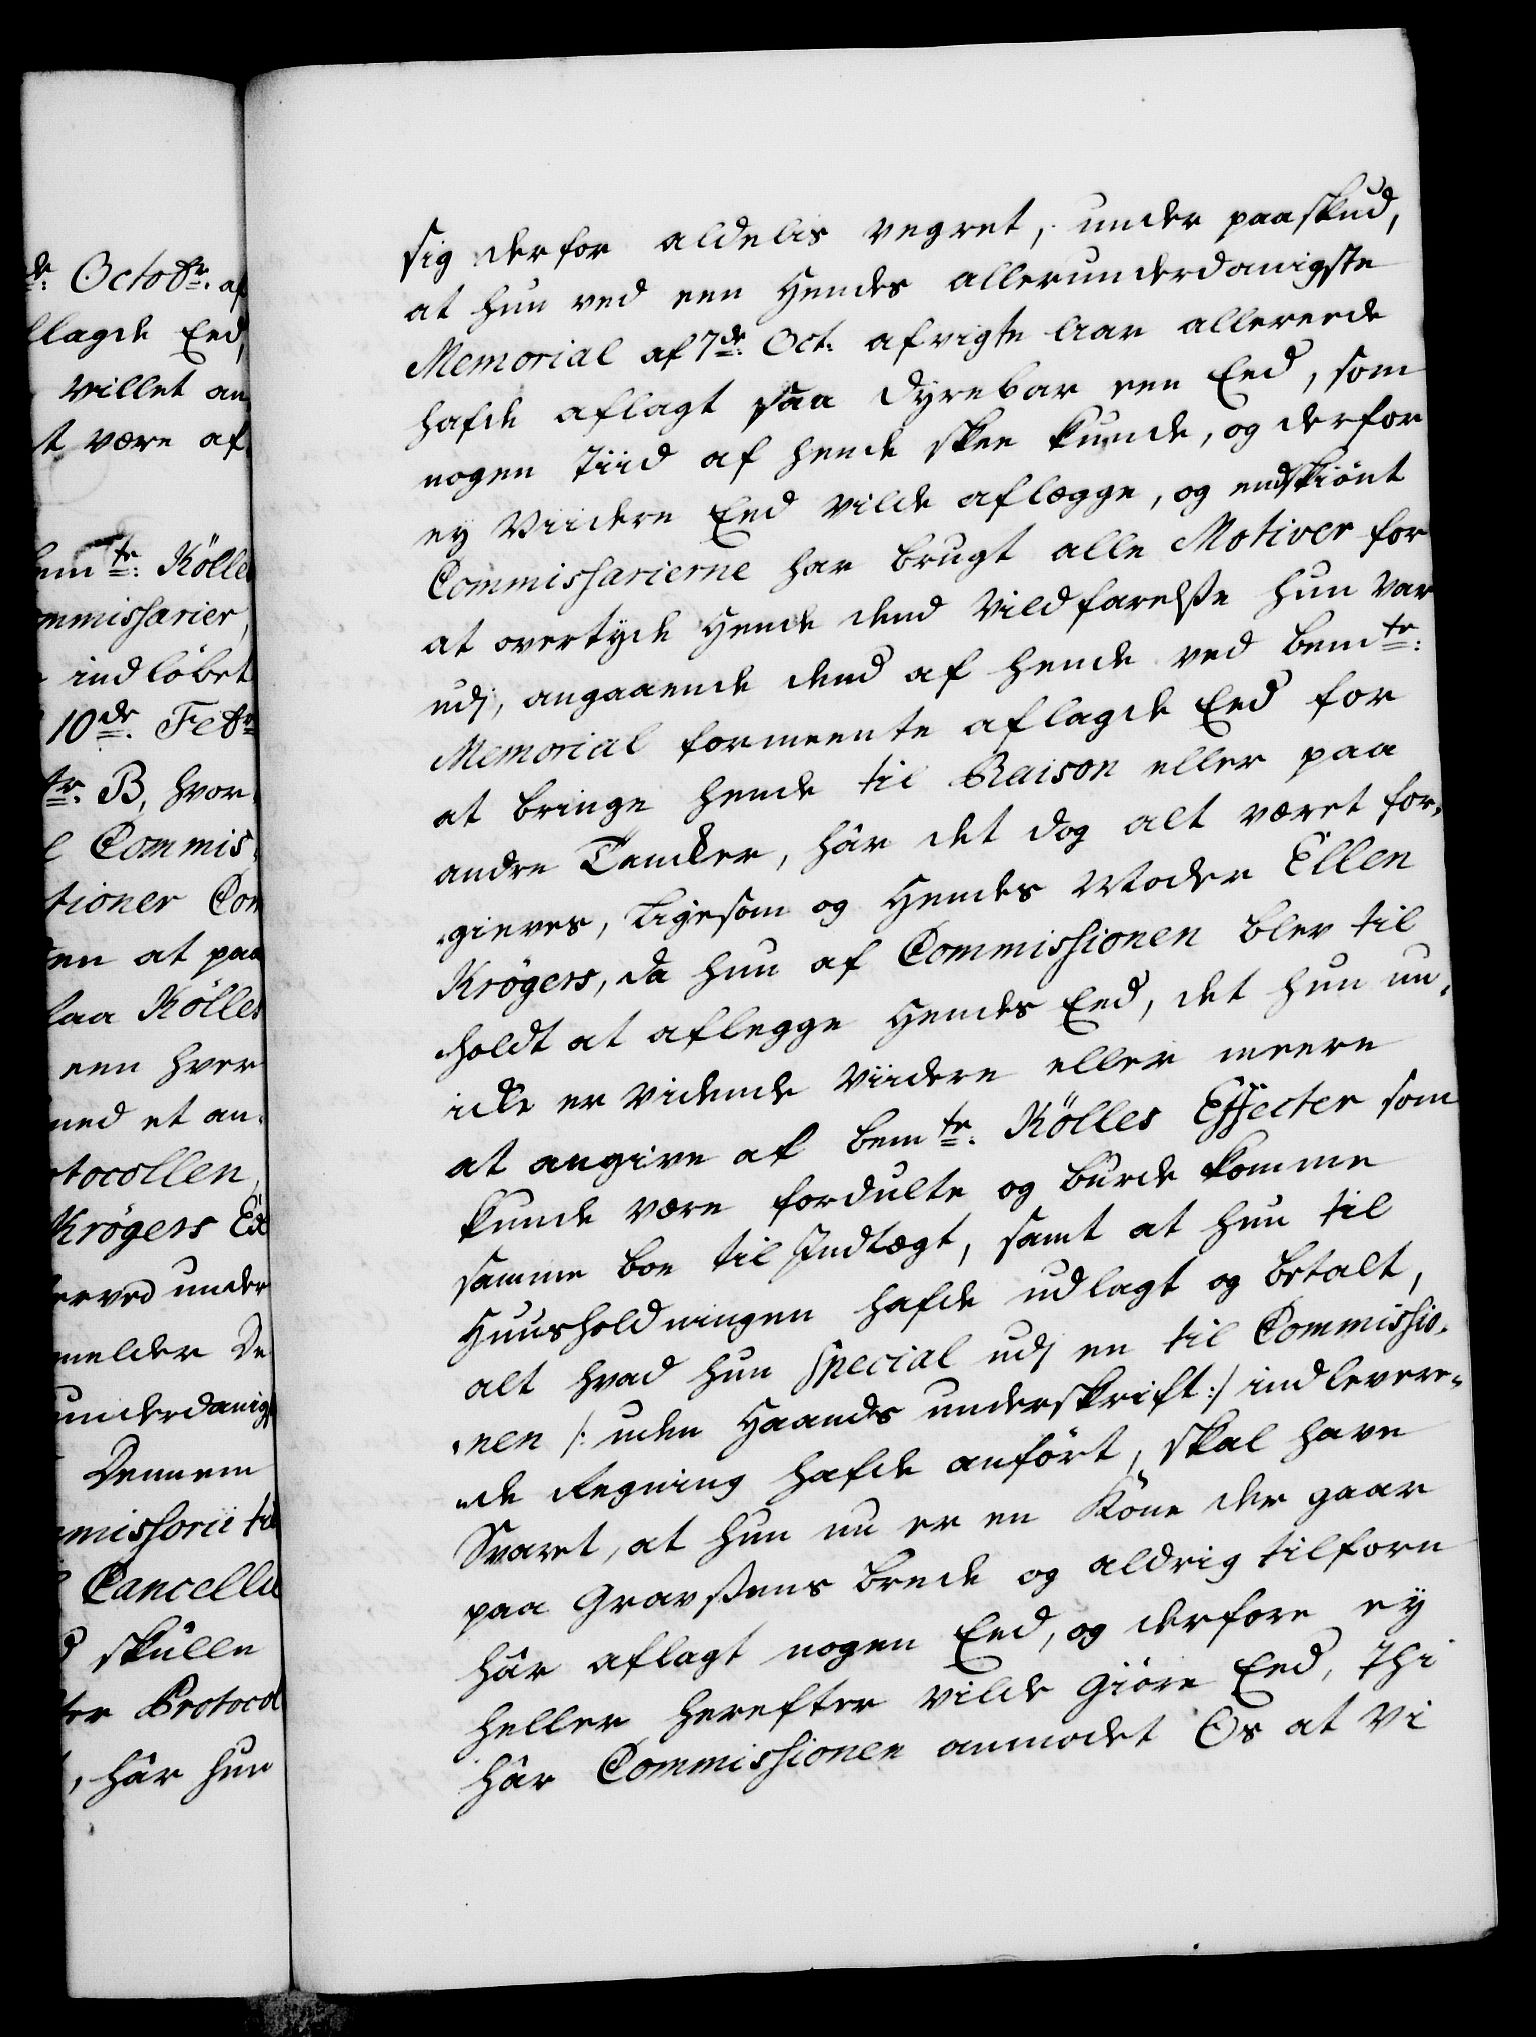 de: Octobr: af
llagde Eed,
villet an
t være af
emte: Kölle
mmissarier,
indløbet
10de: Febr
tr: B, hvor
l Commis
tioner Com
en at paa
laa Kölles
een hver
med et an
tocollen,
Krögers Ee
erved under
melder De
underdanigs
Dennem
missorii til
Cancellie
skulle
er Protocol
, här hun
sig derfor aldeles vegret, under paaskud,
at hun ved een Hendes allerunderdanigste
Memorial af 7de: Oct: afvigte Aar allereede
hafde aflagt saa dyrebar een Eed, som
nogen Tiid af hende skee kunde, og derfor
ey Viidere Eed vilde aflægge, og endskiönt
Commissarierne har brugt alle Motiver for
at overtyde Hende dend Vildfarelße hun var
udj, angaaende dend af hende ved bemte:
Memorial formeente aflagde Eed for
at bringe hende til Raison eller paa
andre Tancker, här det dog alt været for-
gieves, Ligesom og Hendes Moder Ellen
Krögers, da hun af Commissionen blev til
holdt at aflegge Hendes Eed, det hun nu,
icke er vidende Viidere eller meere
at angive af bemte: Kölles Effecter som
kunde være fordulte og burde komme
samme boe til Indtægt, samt at hun til
Huusholdningen hafde udlagt og betalt,
alt hvad hun special udj en til Commissio-
nen /: uden Haands underskrift :/ indlevere-
de Regning hafde anfört, skal have
Svaret, at hun nu er en Kone der gaar
paa Gravßens brede og aldrig tilforn
här aflagt nogen Eed, og derfore ey
heller herefter vilde giöre Eed, Thi
här Commissionen anmodet Os at Vi